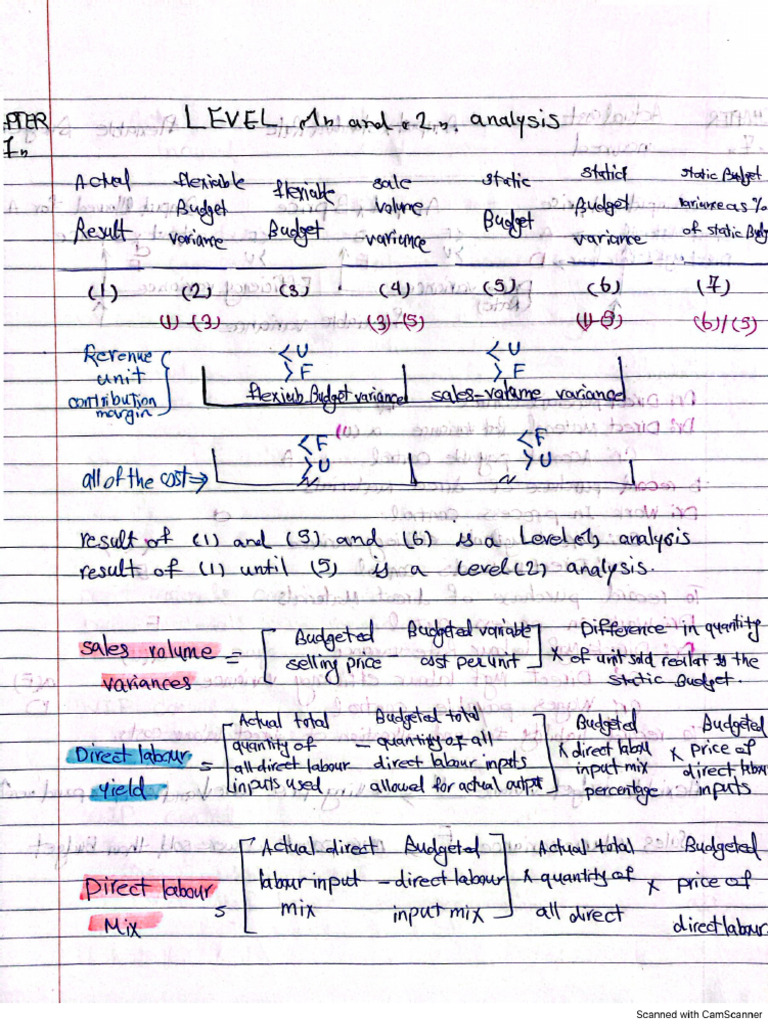 PTER LEVEL 1 and 2 analysis
Actual flexiable flexiable sale static static static Budget
Budget volume Budget variance as %
Result variance Budget variance Budget variance of static Budg
(1) (2) (3) (4) (5) (6) (7)
(1)-(3) (3)-(5) (1)-(5) (6)/(5)
Revenue <U <U
unit >F >F
contribution flexiub Budget variance sales-volume variance
margin
<F <F
all of the cost → >U >U
result of (1) and (5) and (6) is a Level(1) analysis
result of (1) until (5) is a Level(2) analysis.
sales volume = [ Budgeted - Budgeted variable ] × Difference in quantity
variances selling price cost per unit of unit sold realat to the
static Budget.
Actual total Budgeted total Budgeted Budgeted
Direct labour = [ quantity of - quantity of all ] × direct labou × price of
all direct labour direct labour inputs input mix direct labour
yield inputs used allowed for actual output percentage inputs
Actual direct Budgeted Actual total Budgeted
Direct labour = [ labour input - direct labour ] × quantity of × price of
Mix mix input mix all direct direct labour
Scanned with CamScanner